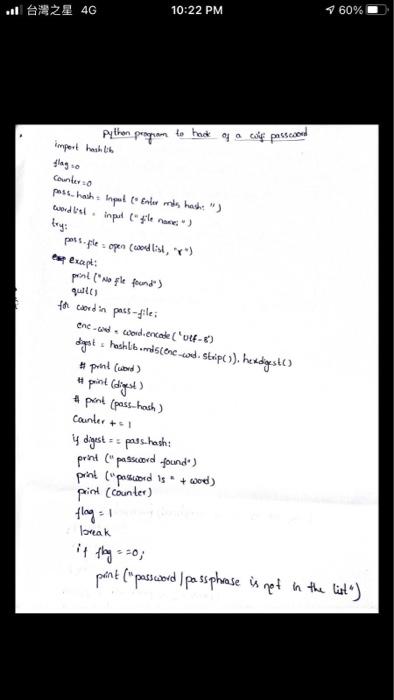 台灣之星 4G 10:22 PM 60%
Python program to hack of a wifi password
import hashlib
flag=0
Counter=0
pass_hash = input ("Enter md5 hash: ")
wordlist = input ("file name: ")
try:
pass-file = open (wordlist, "r")
except:
print ("No file found")
quit()
for word in pass-file:
enc-wrd = word.encode('utf-8')
digest = hashlib.md5(enc-wrd.strip()).hexdigest()
# print (word)
# print (digest)
# print (pass-hash)
Counter += 1
if digest == pass-hash:
print ("password found")
print ("password is " + word)
print (counter)
flag = 1
break
if flag ==0;
print ("password/passphrase is not in the list")